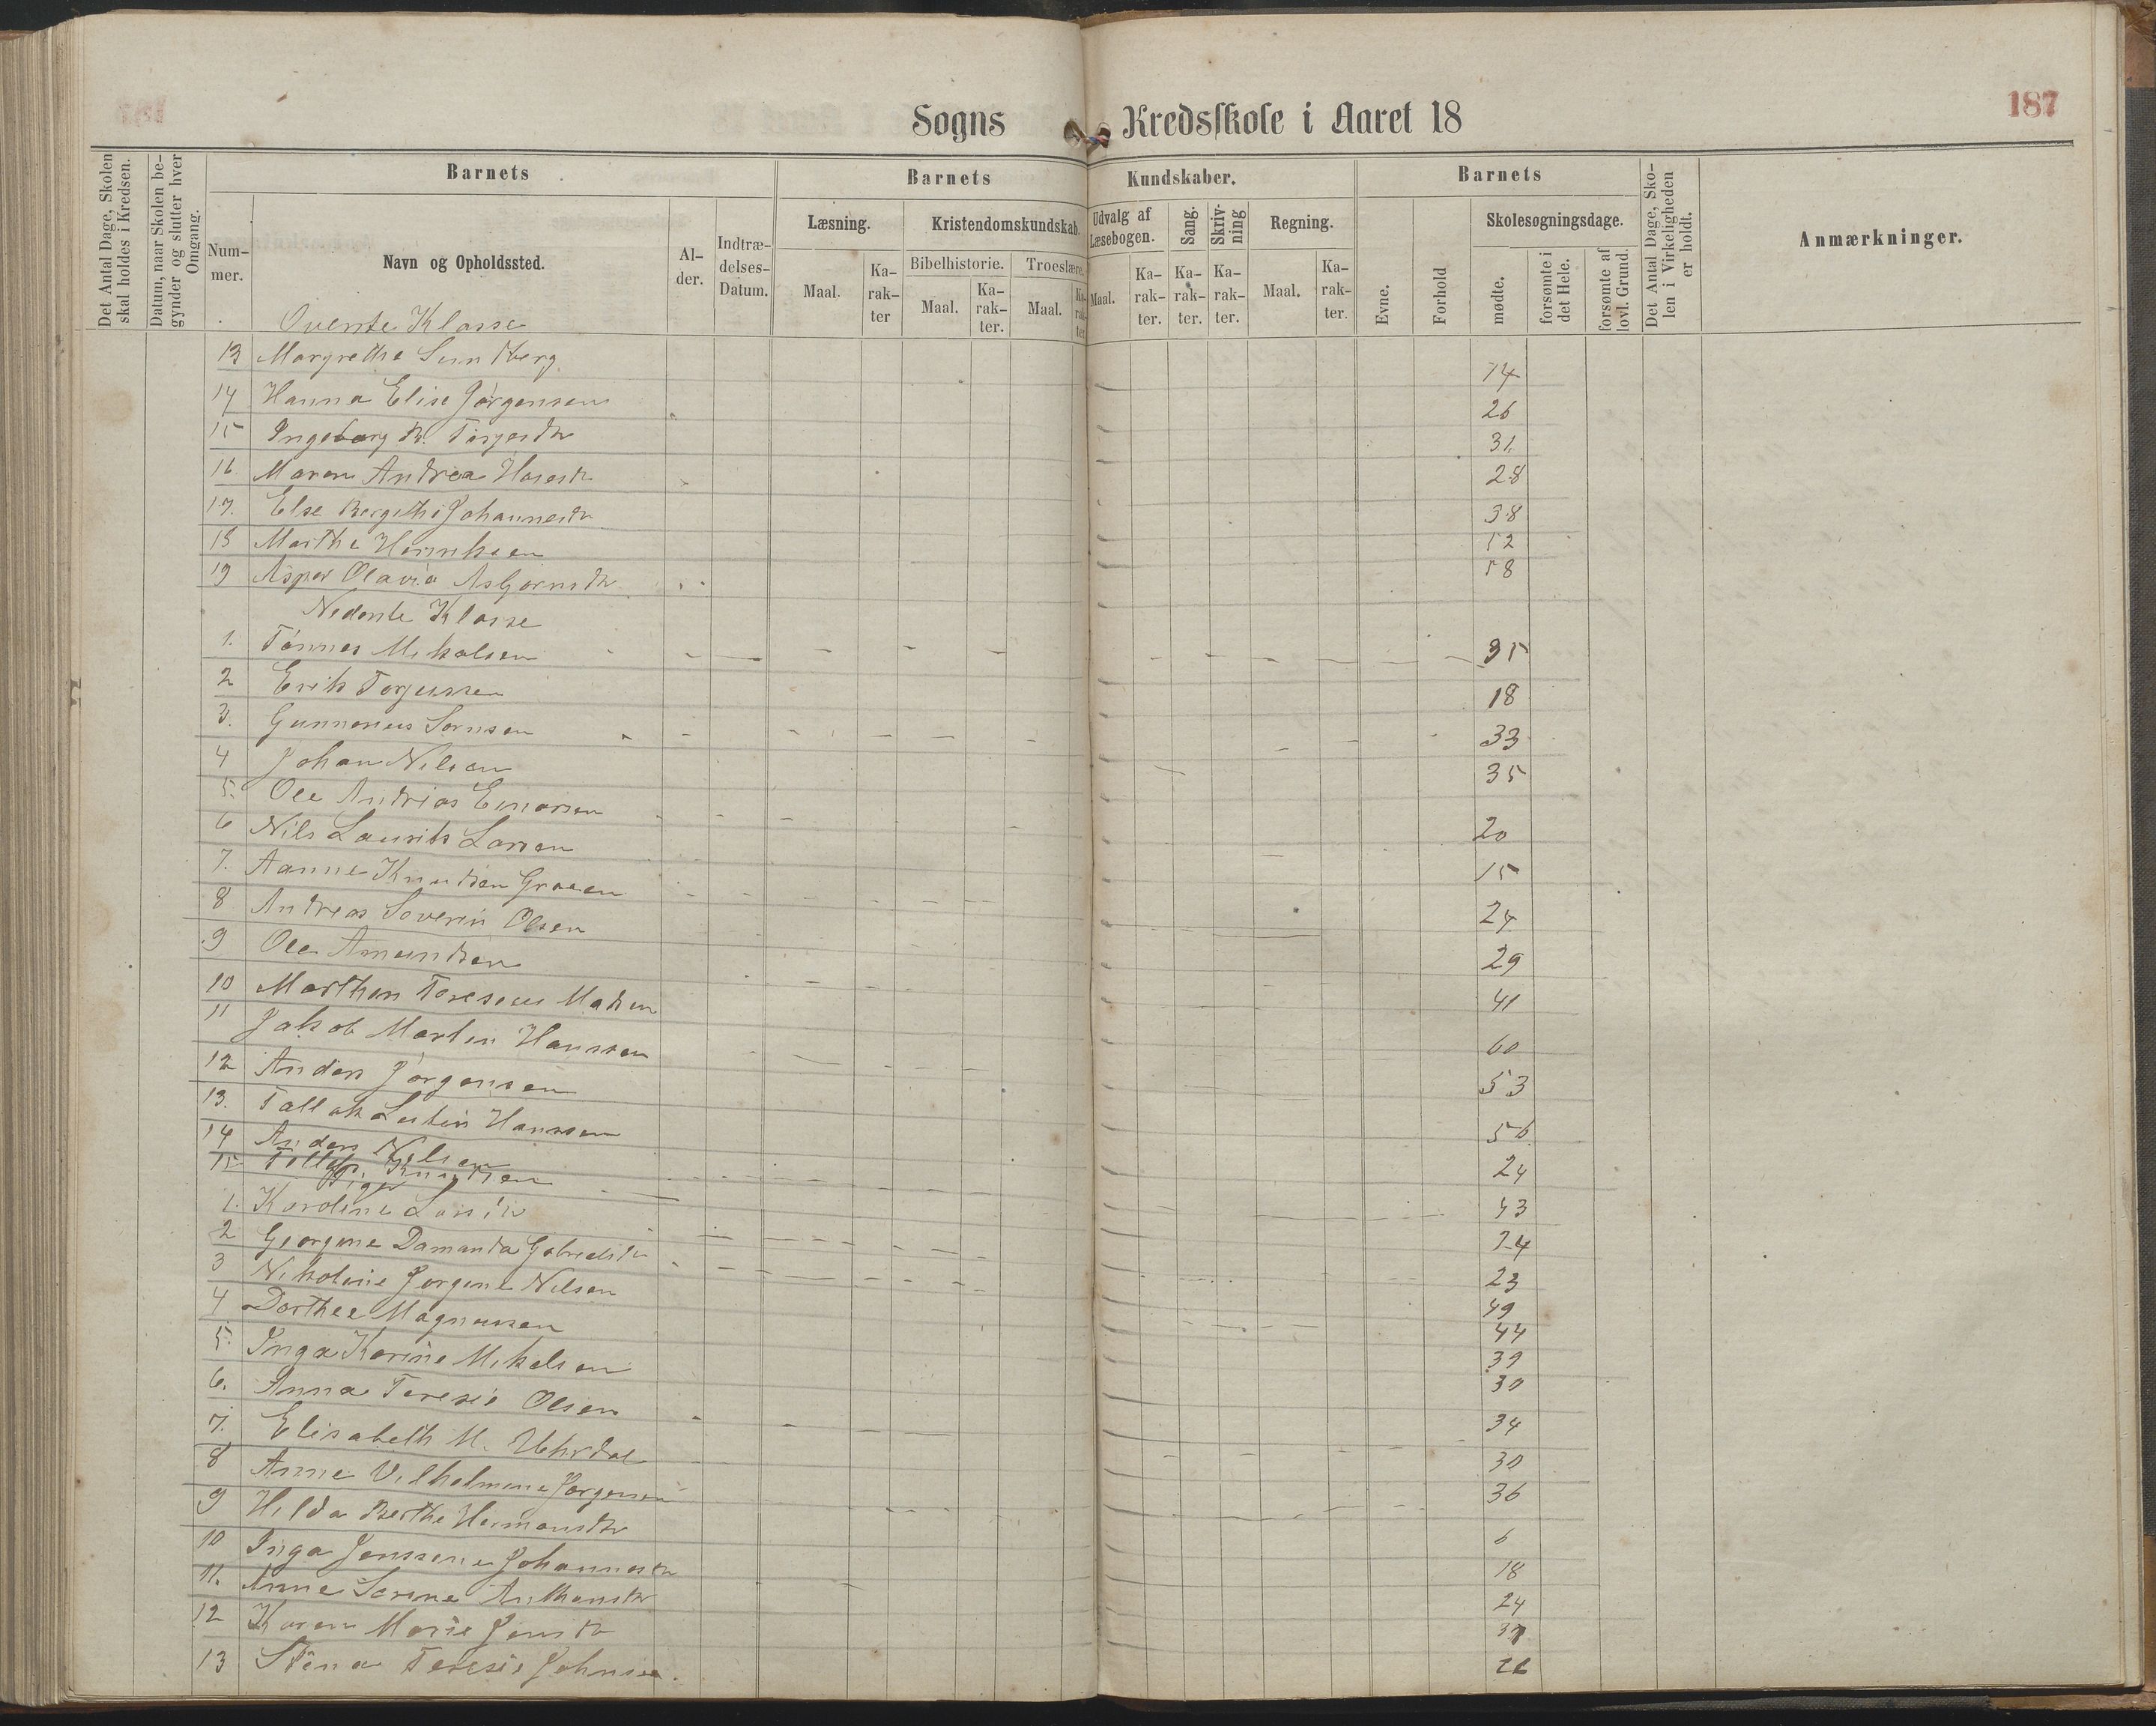 187
Sogns Kredsskole i Aaret 18
Det Antal Dage, Skolen skal holdes i Kredsen.
Datum, naar Skolen begynder og slutter hver Omgang.
Barnets
Nummer.
Navn og Opholdssted.
Alder.
Indtrædelses-Datum.
Barnets Kundskaber.
Læsning.
Maal.
Karakter
Kristendomskundskab.
Bibelhistorie.
Maal.
Karakter.
Troeslære.
Maal.
Karakter
Udvalg af Læsebogen.
Maal.
Karakter.
Sang.
Karakter.
Skrivning
Karakter.
Regning.
Maal.
Karakter.
Barnets
Evne.
Forhold
Skolesøgningsdage.
mødte.
forsømte i det Hele.
forsømte af lovl. Grund.
Det Antal Dage, Skolen i Virkeligheden er holdt.
Anmærkninger.
Øverste Klasse
13 Margrethe Sundberg 74
14 Hanna Elise Jørgensen 26
15 Ingeborg B. Torjesdtr 31
16. Maren Andrea 28
17. Else Bergithe Johannesdtr 38
18 Marthe 52
19 Asper Olavia Asbjørnsdtr 58
Nederste Klasse
1. Tønnes Mikalsen 35
2 Erik Torjussen 18
3. Gunnerius Sørnsen 33
4 Johan Nilsen 35
5. Ole Andrias Einarsen 20
6 Nils Laurits Larsen 15
7. Aanne Knudsen Graaen 24
8 Andreas Severin Olsen 29
9 Ole Amundsen 41
10 Marthen Toresius Madsen 60
11 Jakob Martin Hanssen 53
12 Anders Jørgensen 56
13. Tallak Hanssen 24
14 Anders Nilsen 43
15 Knudsen
Piger
1. Karoline Larsdtr 23
2 Georgine Damanda Gabrielsdtr 49
3 Nikoline Jørgine Nilsen 44
4 Dorthee Magnussen 39
5. Inga Karine Mikalsen 30
6. Anna Teresie Olsen 34
7. Elisabeth M. 30
8 Anne Vilhelmine Jørgensen 36
9 Hilda Berthe Hermansdtr 6
10 Inga Jenssene Johannesdtr 18
11. Anne Serine Anthonsdtr 24
12 Karen Marie Jensdtr
13 Stina Teresie Johnsen